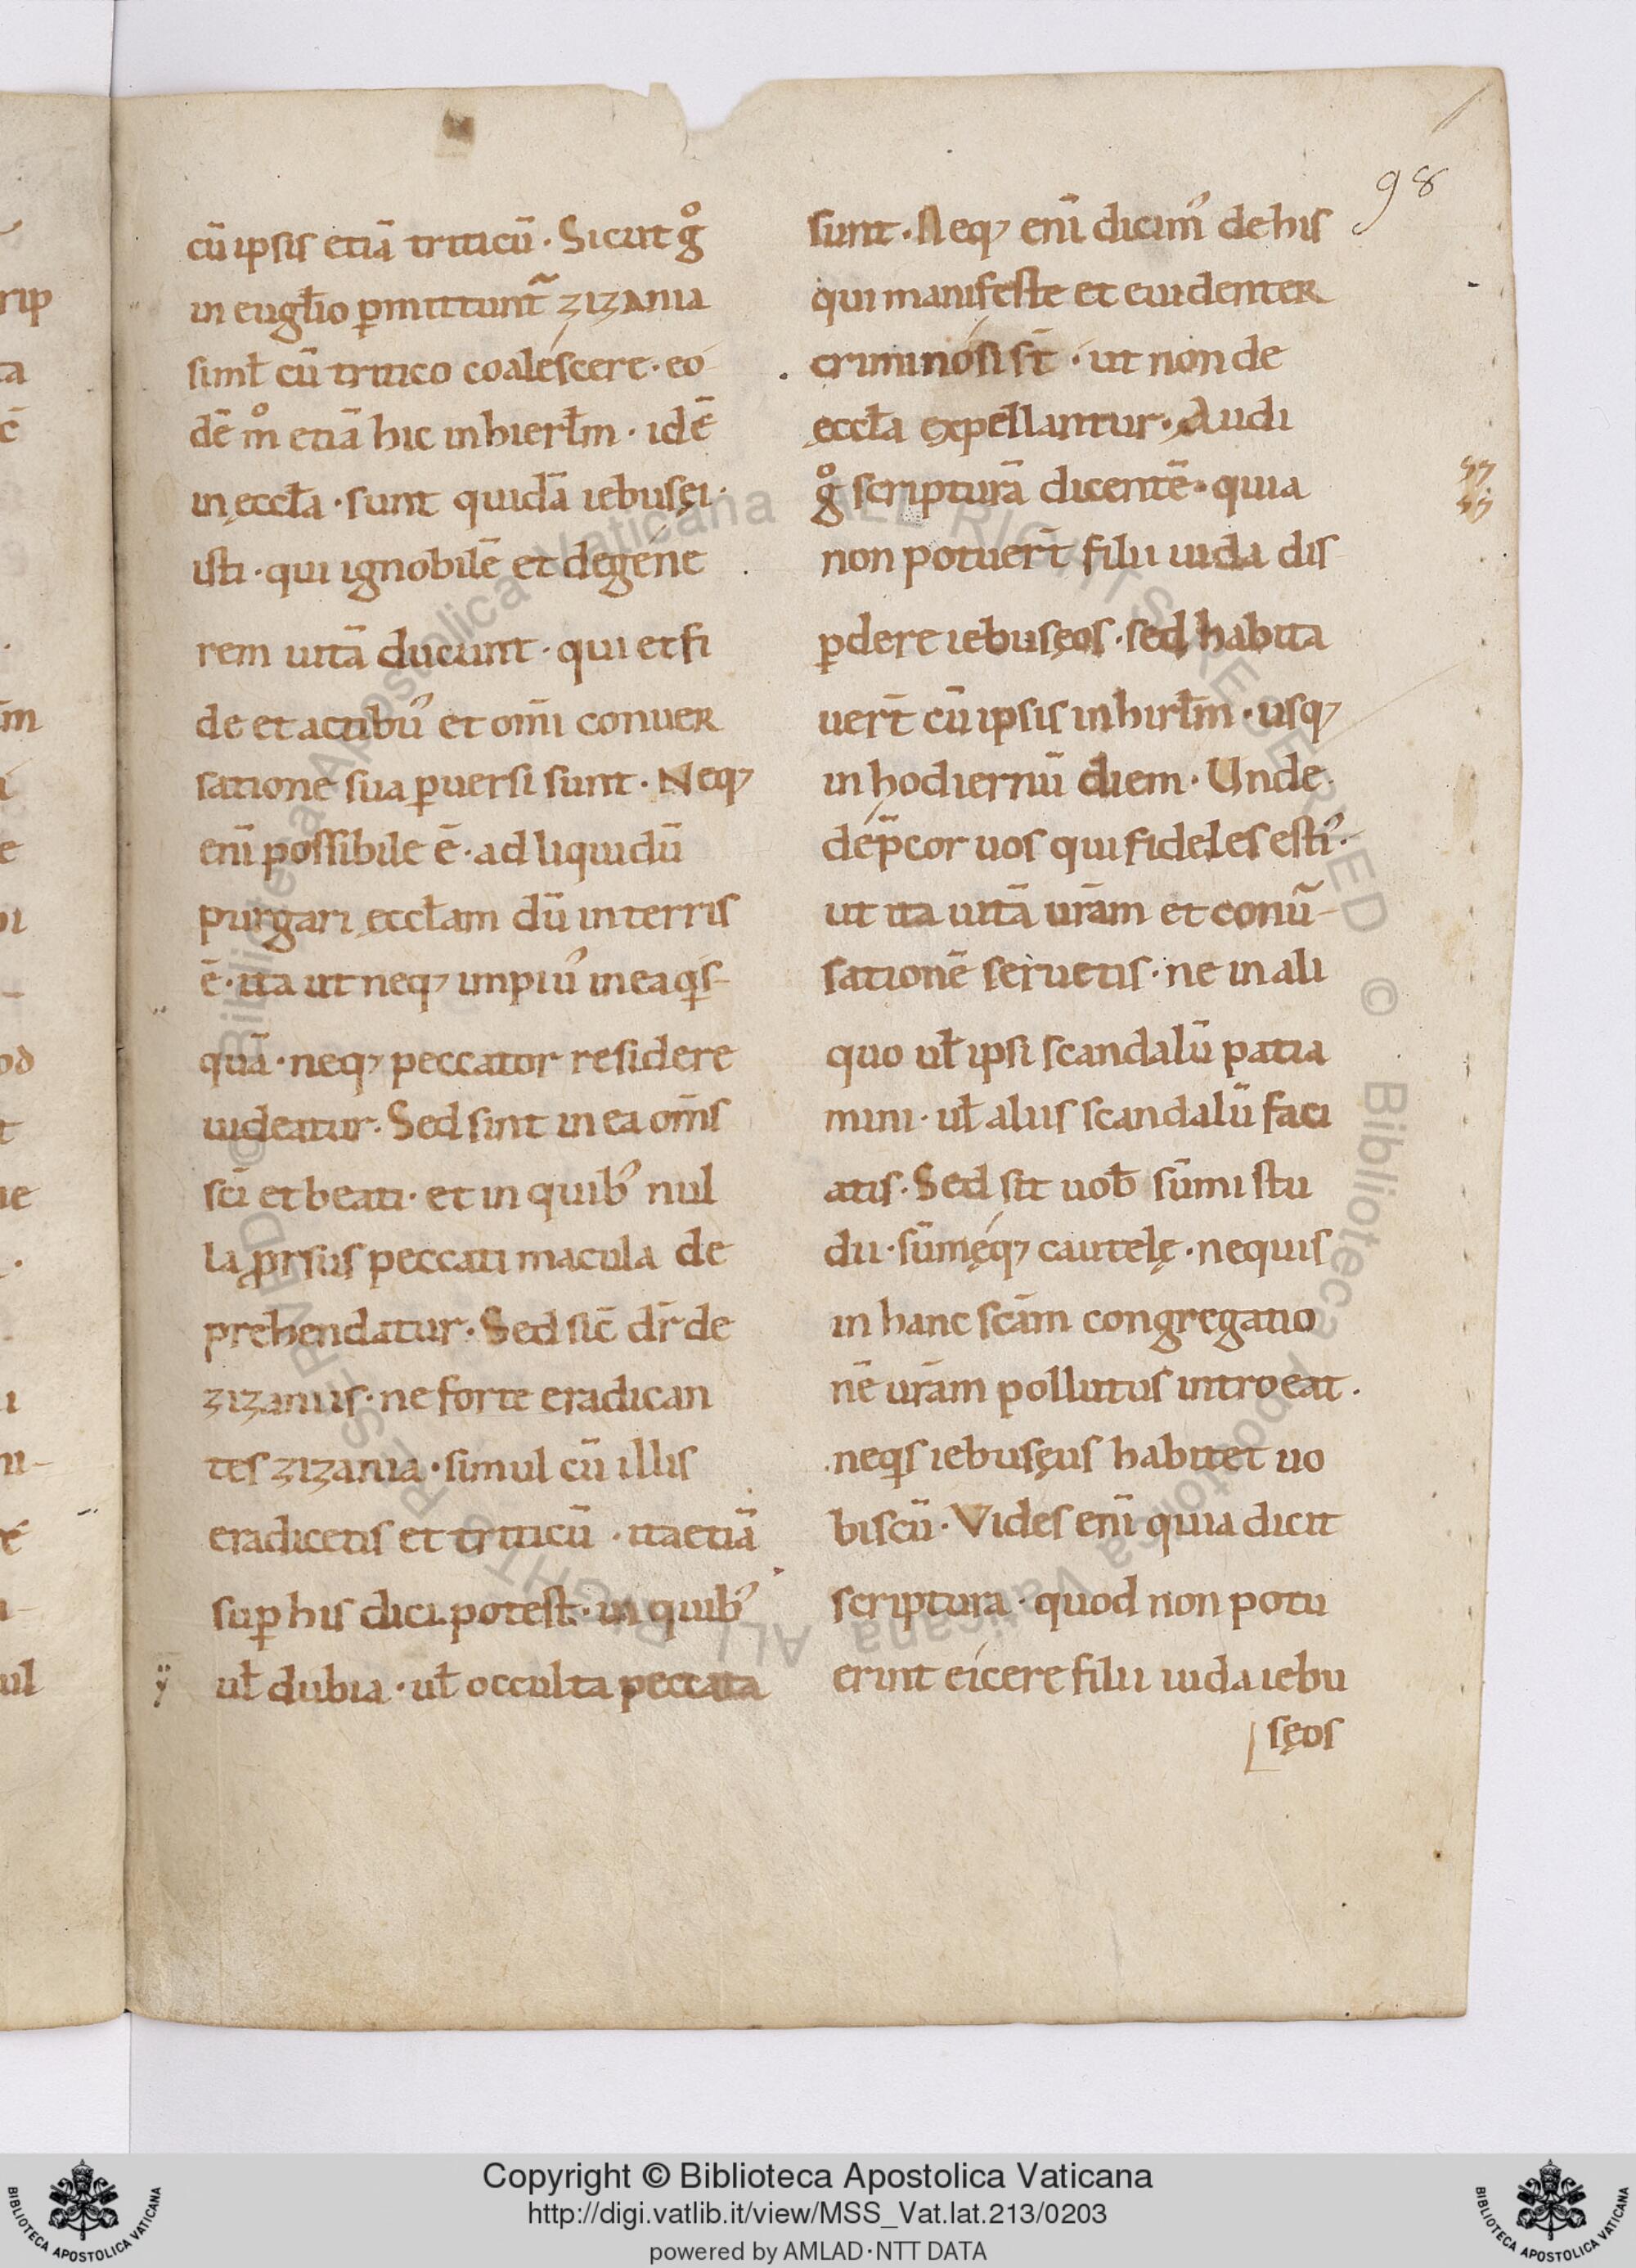 98
cū ipsis etiā triticū · Sicut g̊
in euglīo ꝑmittunt᷑ zizania
simł cū tritico coalescere · eo
dē m̊ etiā hic in hierłm · idē
in ęccła · sunt quidā iebusęi ·
isti · qui ignobilē et degene
rem uitā ducunt · qui et fi
de et actibuʼ et om̄i conuer
satione sua ꝑuersi sunt · Neqꝫ
eni̅ possibile ē · ad liquidū
purgari ęccłam dū in terris
ē · ita ut neqꝫ impiuʼ in ea qͥs
quā · neqꝫ peccator residere
uideatur · Sed sint in ea om̄s
sc̄i et beati · et in quibʼ nul
la ꝓrsus peccati macula de
prehendatur · Sed sic̄ dr̄ de
zizaniis · ne forte eradican
tes zizania · simul cū illis
eradicetis et triticū · ita etiā
suꝑ his dici potest · in quibʼ
uł dubia · uł occulta peccata
sunt · Neqꝫ eni̅ dicimʼ de his
qui manifeste et euidenter
criminosi st̄ · ut non de
ęccła expellantur · Audi
g̊ scripturā dicentē · quia
non potuer̄t filii iuda dis
ꝑdere iebusęos · sed habita
uer̄t cū ipsis in hirłm · usqꝫ
in hodiernū diem · Unde
dep̄cor uos qui fideles estiʼ ·
ut ita uitā ur̄am et conu᷑
sationē seruetis · ne in ali
quo uł ipsi scandalū patia
mini · uł aliis scandalū faci
atis · Sed sit uob̄ sūmi stu
dii · sūmęqꝫ cautelę · nequis
in hanc sc̄am congregatio
nē ur̄am pollutus introeat ·
neqͥs iebusęus habitet uo
biscū · Vides eni̅ quia dicit
scriptura · quod non potu
erint eicere filii iuda iebu
sęos
Copyright © Biblioteca Apostolica Vaticana
http://digi.vatlib.it/view/MSS_Vat.lat.213/0203
powered by AMLAD·NTT DATA